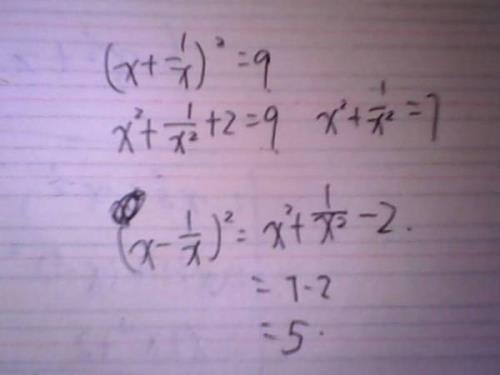 (x+1/x)²=9
x²+1/x²+2=9 x²+1/x²=7
(x-1/x)²=x²+1/x²-2.
=7-2
=5.